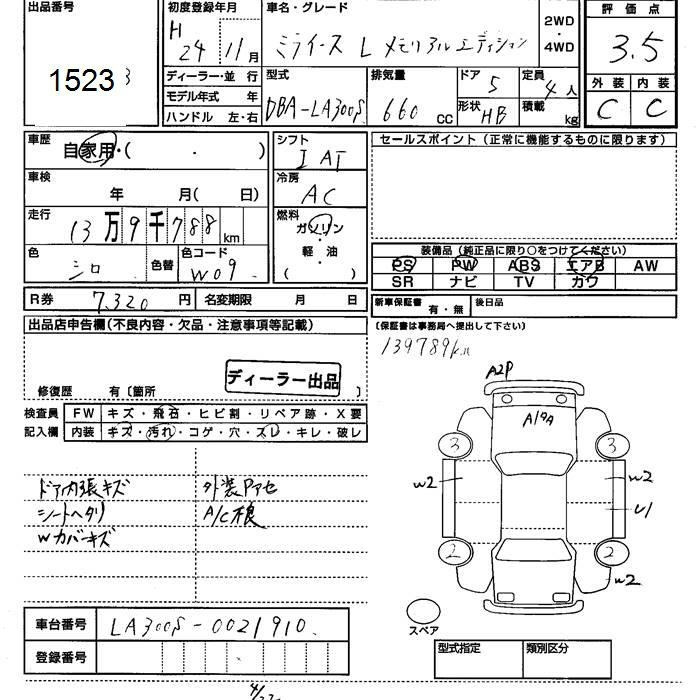 出品番号
1523
初度登録年月
H
24 年 11 月
ディーラー・並 行
モデル年式 年
ハンドル 左・右
車名・グレード
ミライース L メモリアルエディション
2WD
・
4WD
型式
DBA-LA300S
排気量
660 CC
ドア 5
形状 HB
定員 4 人
積載 kg
評 価 点
3.5
外 装 内 装
C C
車歴
自家用・( ・ )
車検
年 月( 日)
走行
13万9千788km
色
シロ
色替
色コード
W09
シフト
I AT
冷房
AC
燃料
ガソリン
・
軽・油
( )
セールスポイント(正常に機能するものに限ります)
装備品(純正品に限り○をつけてください)
PS PW ABS エアB AW
SR ナビ TV カワ
R券 7,320 円 名変期限 月 日
新車保証書 有・無 後日品
(保証書は事務局へ提出して下さい)
139789km
出品店申告欄(不良内容・欠品・注意事項等記載)
ディーラー出品
修復歴 有〔箇所 〕
検査員 FW キズ・飛石・ヒビ割・リペア跡・X要
記入欄 内装 キズ・汚れ・コゲ・穴・スレ・キレ・破レ
ドア内張キズ 外装Pアセ
シートヘタリ A/C根
Wカバーキズ
A2P
A1PA
3 3
W2 W2
U1
2 2
W2
スペア
車台番号 LA300S-0021910
登録番号
型式指定 類別区分